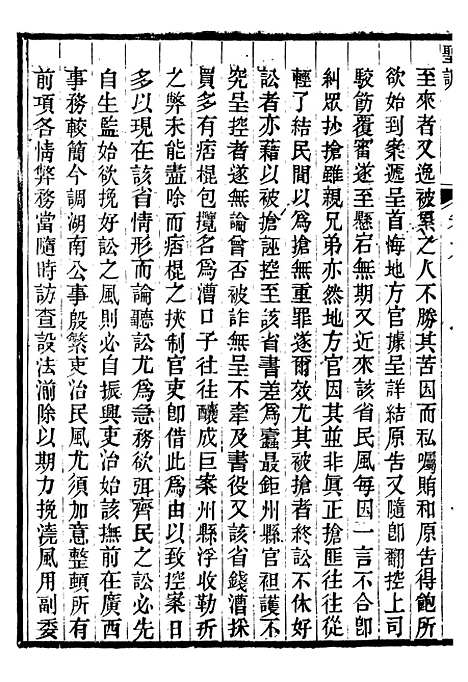 聖訓
至來者又逸被累之人不勝其苦因而私囑賄和原告得飽所
欲始到案遞呈首悔地方官據呈詳結原告又隨卽翻控上司
駁飭覆審遂至懸宕無期又近來該省民風每因一言不合卽
糾眾抄搶雖親兄弟亦然地方官因其並非眞正搶匪往往從
輕了結民間以爲搶無重罪遂爾效尤其被搶者終訟不休好
訟者亦藉以被搶誣控至該省書差爲蠹最鉅州縣官袒護不
究呈控者遂無論曾否被詐無呈不牽及書役又該省錢漕採
買多有痞棍包攬名爲漕口子往往釀成巨案州縣浮收勒折
之弊未能盡除而痞棍之挾制官吏卽借此爲由以致控案日
多以現在該省情形而論聽訟尤爲急務欲弭齊民之訟必先
自生監始欲挽好訟之風則必自振興吏治始該撫前在廣西
事務較簡今調湖南公事殷繁吏治民風尤須加意整頓所有
前項各情弊務當隨時訪查設法湔除以期力挽澆風用副委